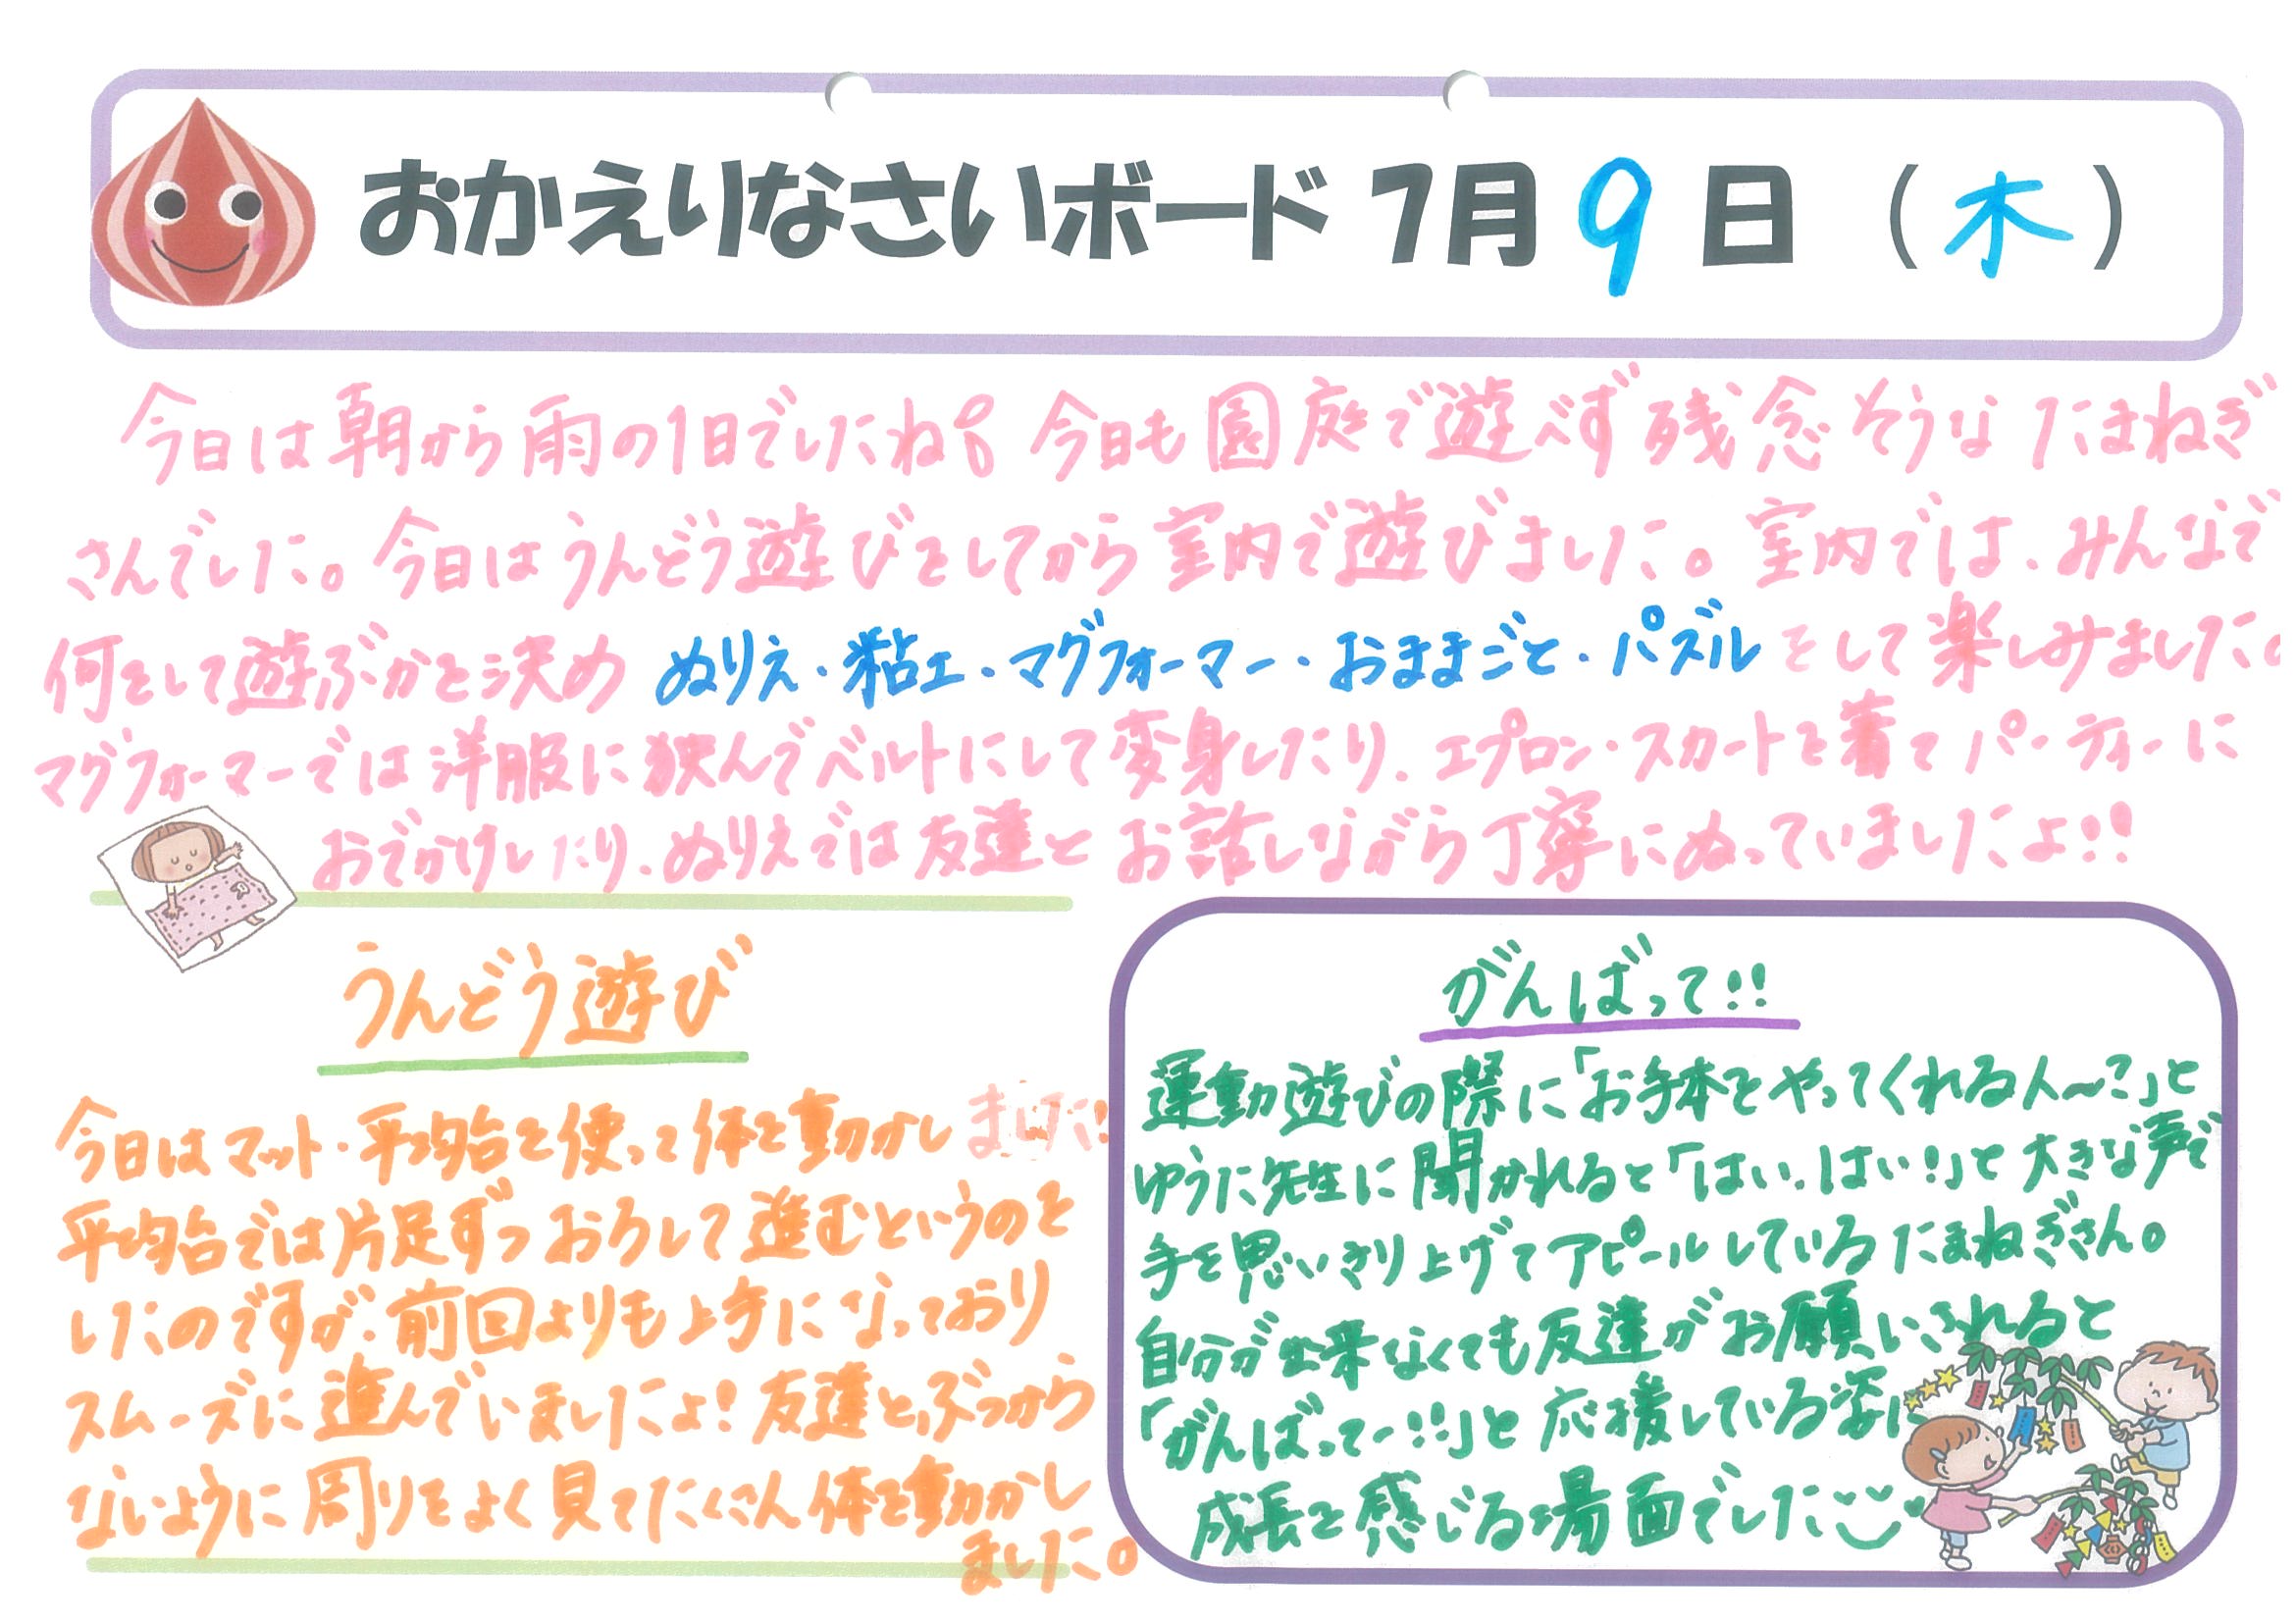 おかえりなさいボード 7月9日（木）
今日は朝から雨の1日でしたね。今日も園庭で遊べず残念そうなたまねぎ
さんでした。今日はうんどう遊びをしてから室内で遊びました。室内では、みんなで
何をして遊ぶかを決め ぬりえ・粘土・マグフォーマー・おままごと・パズルをして楽しみました。
マグフォーマーでは洋服に挟んでベルトにして変身したり、エプロン・スカートを着てパーティーに
おでかけしたり、ぬりえでは友達とお話しながら丁寧にぬっていましたよ!!
うんどう遊び
今日はマット・平均台を使って体を動かしました!
平均台では片足ずつおろして進むというのを
したのですが、前回よりも上手になっており
スムーズに進んでいましたよ!友達とぶつから
ないように周りをよく見てたくさん体を動かし
ました。
がんばって!!
運動遊びの際に「お手本をやってくれる人〜?」と
ゆうた先生に聞かれると「はい、はい!」と大きな声で
手を思いきり上げてアピールしているたまねぎさん。
自分が出来なくても友達がお願いされると
「がんばってー!!」と応援している姿に
成長を感じる場面でした